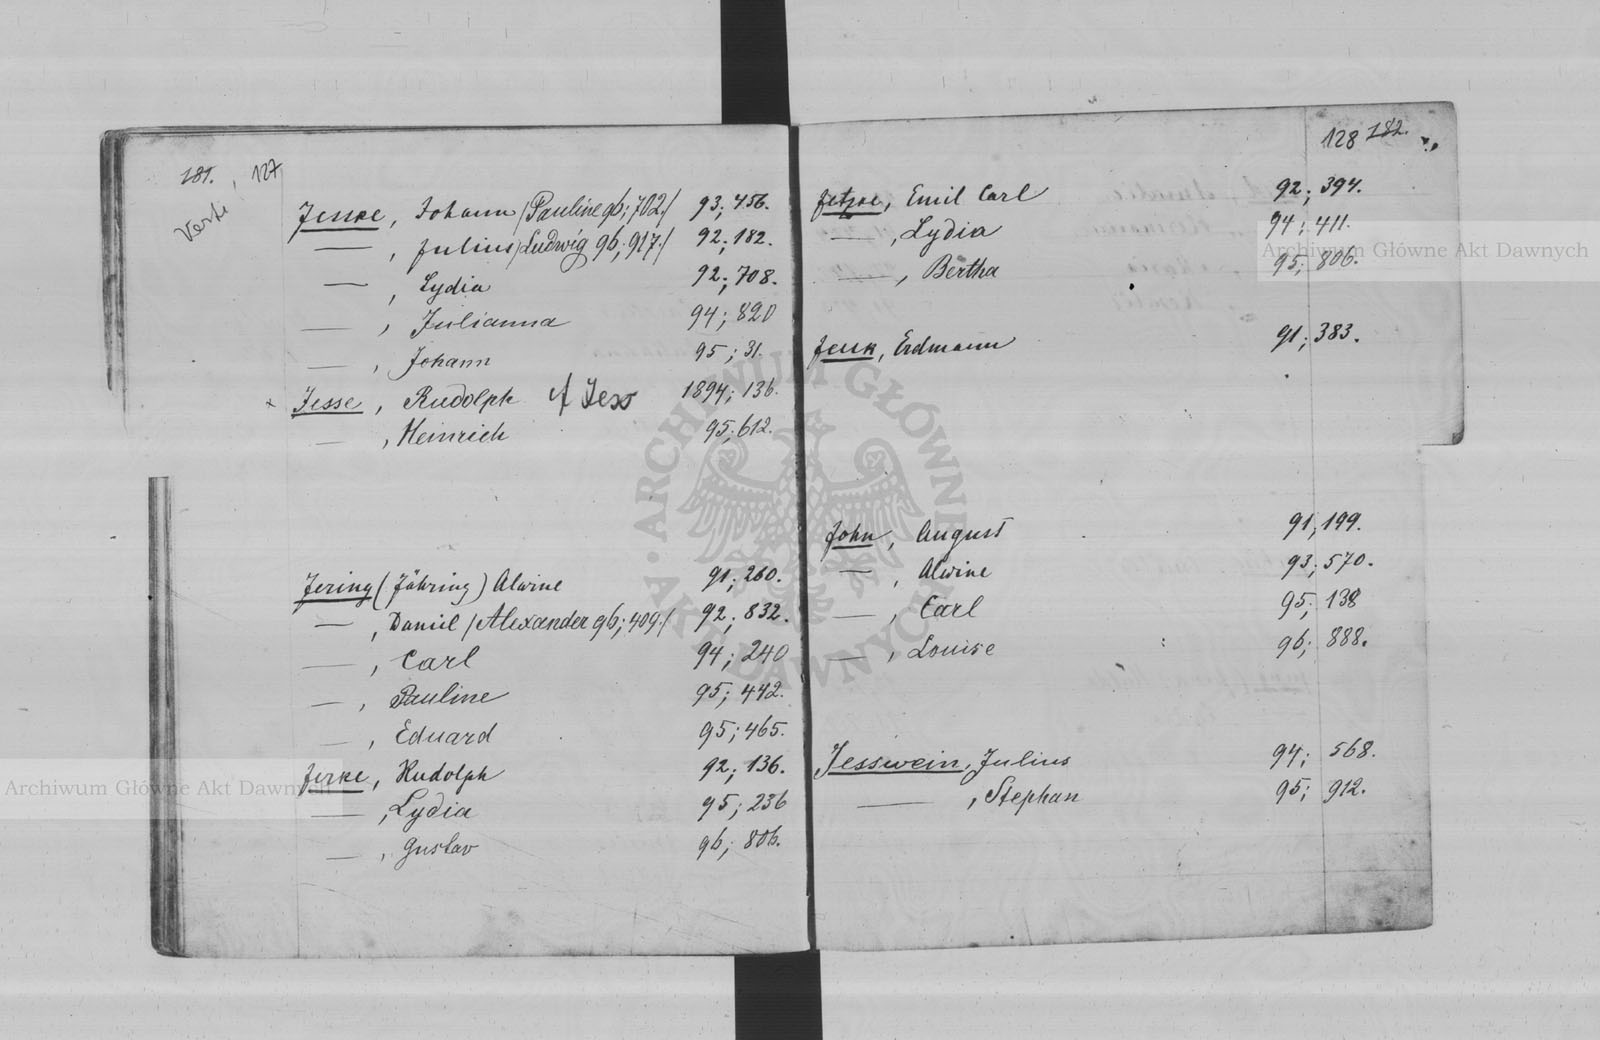 181. 127
Verte
Jeske, Johann /Pauline 96; 702./ 93; 456.
—, Julius /Ludwig 96; 917./ 92; 182.
—, Lydia 92; 708.
—, Julianna 94; 820
—, Johann 95; 31.
× Jesse, Rudolph cf Jess 1894; 136.
—, Heinrich 95; 612.
Jering (Jöhring) Alwine 91; 260.
—, Daniel /Alexander 96; 409./ 92; 832.
—, Carl 94; 240
—, Pauline 95; 442.
—, Eduard 95; 465.
Jerke, Rudolph 92; 136.
—, Lydia 95; 236
—, Gustav 96; 806.
128 182.
Jetzke, Emil Carl 92; 394.
—, Lydia 94; 411.
—, Bertha 95; 806.
Jeuk, Erdmann 91; 383.
John, August 91; 199.
—, Alwine 93; 570.
—, Carl 95; 138
—, Louise 96; 888.
Jesswein, Julius 94; 568.
—, Stephan 95; 912.
Archiwum Główne Akt Dawnych
Archiwum Główne Akt Dawnych
· ARCHIWUM GŁÓWNE · AKT DAWNYCH